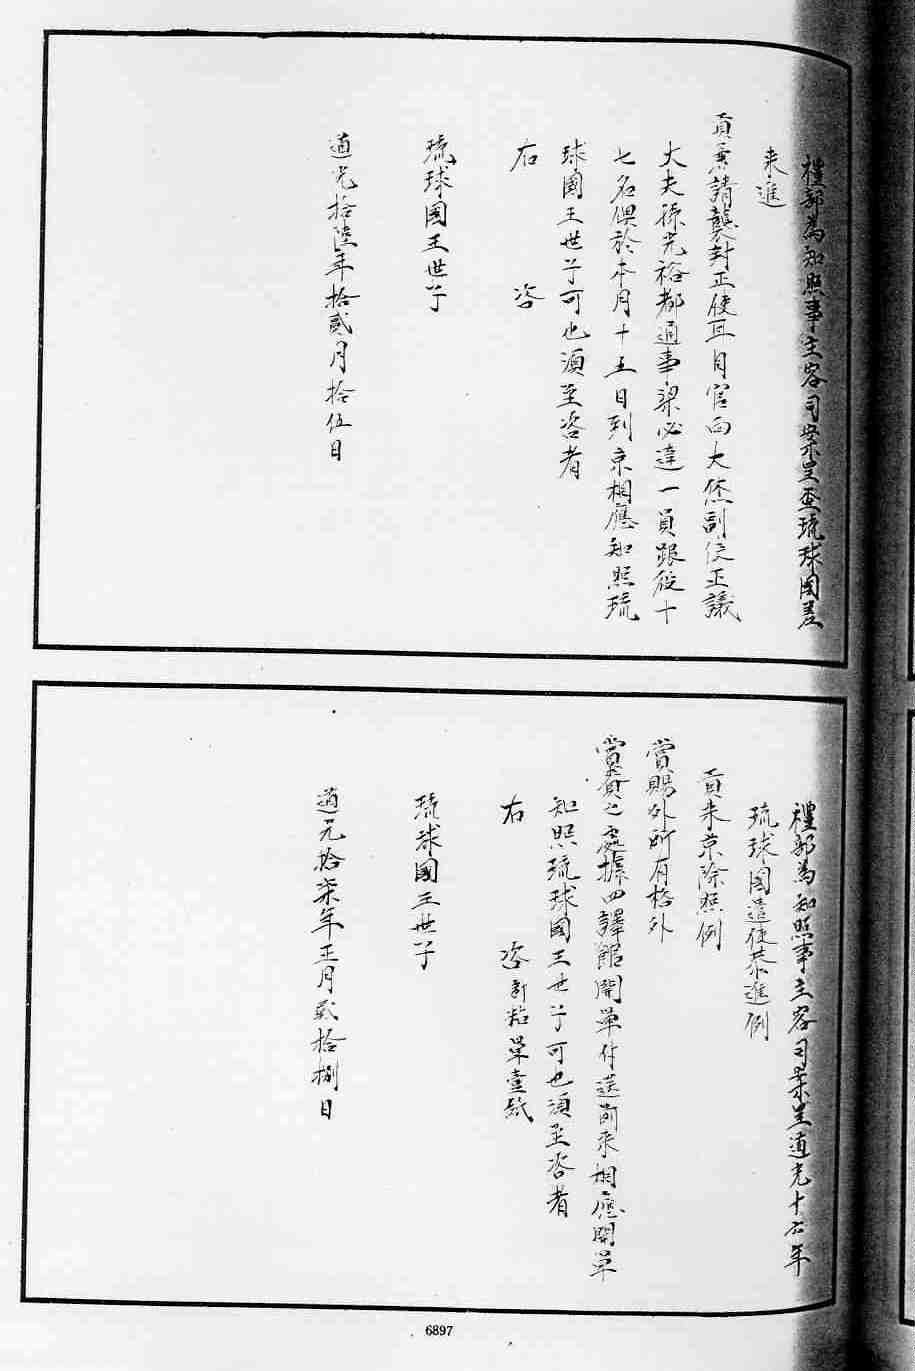 禮部為知照事主客司案呈查琉球國差
来進
貢兼請襲封正使耳目官向大烋副使正議
大夫孫光裕都通事梁必達一員跟役十
七名俱於本月十五日到京相應知照琉
球國王世子可也須至咨者
右　咨
琉球國王世子
道光拾陸年拾貳月拾伍日
禮部為知照事主客司案呈道光十六年
琉球國遣使恭進例
貢来京除照例
賞賜外所有格外
賞賚之處據四譯館開單付送前来相應開單
知照琉球國王世子可也須至咨者
右　咨 計粘單壹紙
琉球國王世子
道光拾柒年正月貳拾捌日
6897